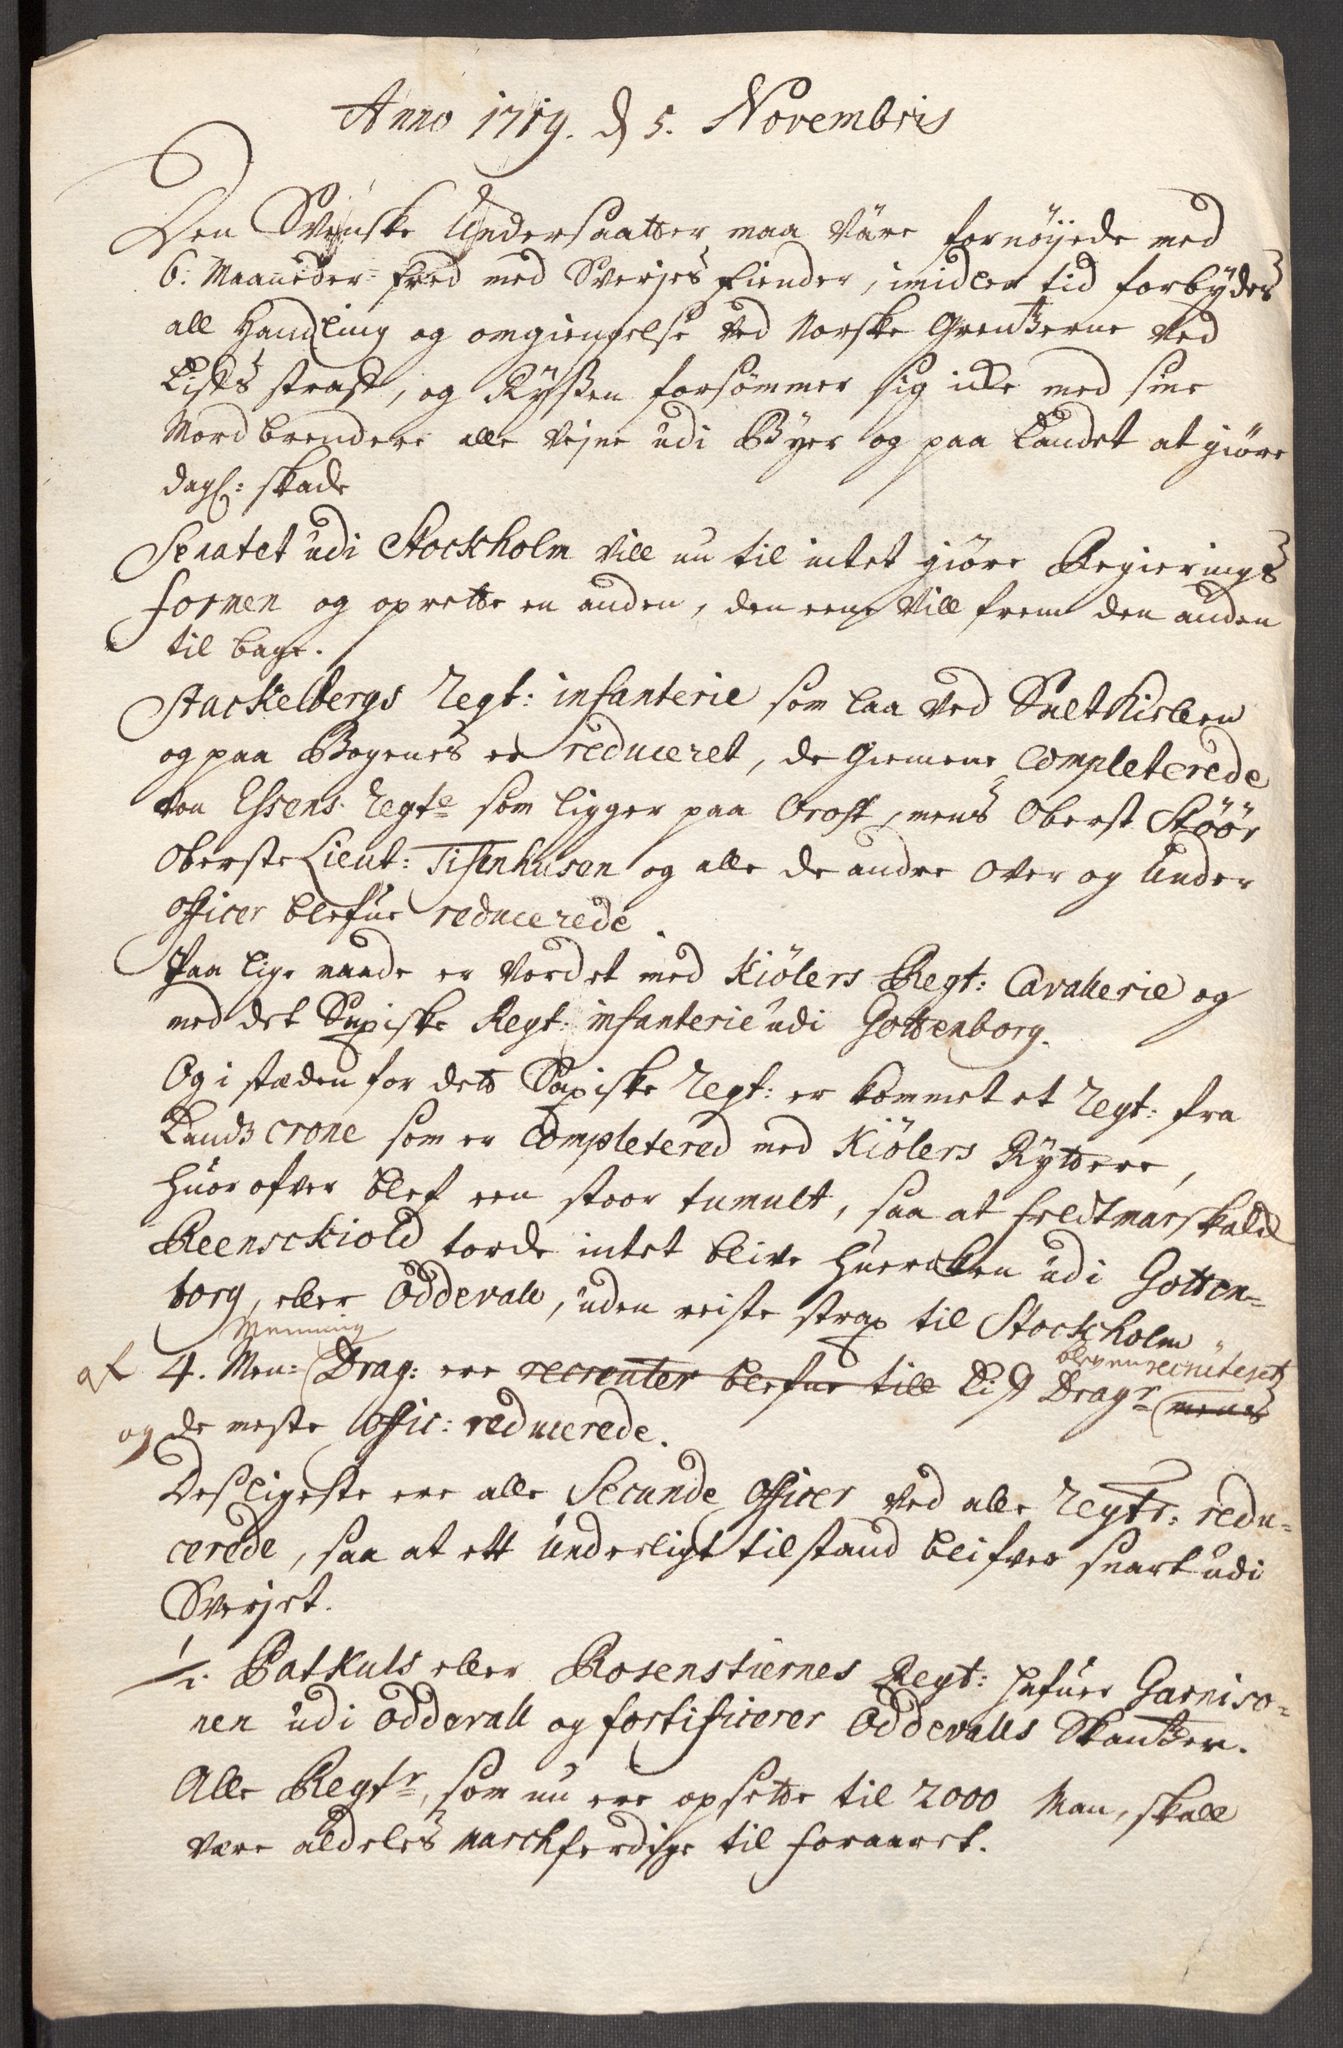 Anno 1719. d 5. Novembris
Den Svenske Undersaatter maa være fornöyede med
6: Maaneder fred med Sverjes fiender, imidler tid forbydes
all Handling og omgiengelse ved Norske Grentzerne ved
Lifs straff, og Ryssen forsömmer sig icke med sine
Mordbrendere alle vejne udi Byer og paa Landet at giöre
dagl: skade
Senatet udi Stockholm vill nu til intet giöre Regierings
formen og oprette en anden, den eene vill frem den anden
til bage.
Stackelbergs Regt: infanterie som laa ved Saltkielen
og paa Bogenes er reduceret, de Giemene Completerede
von Essens Regte som ligger paa Orost, mens Oberst Stöör
Oberste Lieut: Tisenhusen og alle de andre over og Under
officer blefue reducerede.
Paa lige maade er vordet med Kiölers Regt: Cavallerie og
med det Saxiske Regt: infanterie udi Gottenborg.
Og i stæden for dett Saxiske Regt: er kommet et Regt: fra
Landzcrone som er Completered med Kiölers Ryttere,
huor ofver blef een stoor tumult, saa at feldtmarskald
Reenschiold torde intet blive huercken udi Gotten-
borg, eller Oddevall, uden reiste strax til Stockholm
Menning
bleven recruteret
af 4. Men: Drag: ere recrouter blefue till Lif Dragr mens
og de meste offic: reducerede.
Desligeste ere alle Secunde officer ved alle Regtr: redu-
cerede, saa at ett Underligt tilstand blifver snart udi
Sverjet.
1/. Patkuls eller Rosenstiernes Regt: hafuer Garniso-
nen udi Oddevall og fortificerer Oddevalls Skantzer.
Alle Regtr, som nu ere opsette til 2000 Man, skall
være aldeles marchferdige til foraaret.